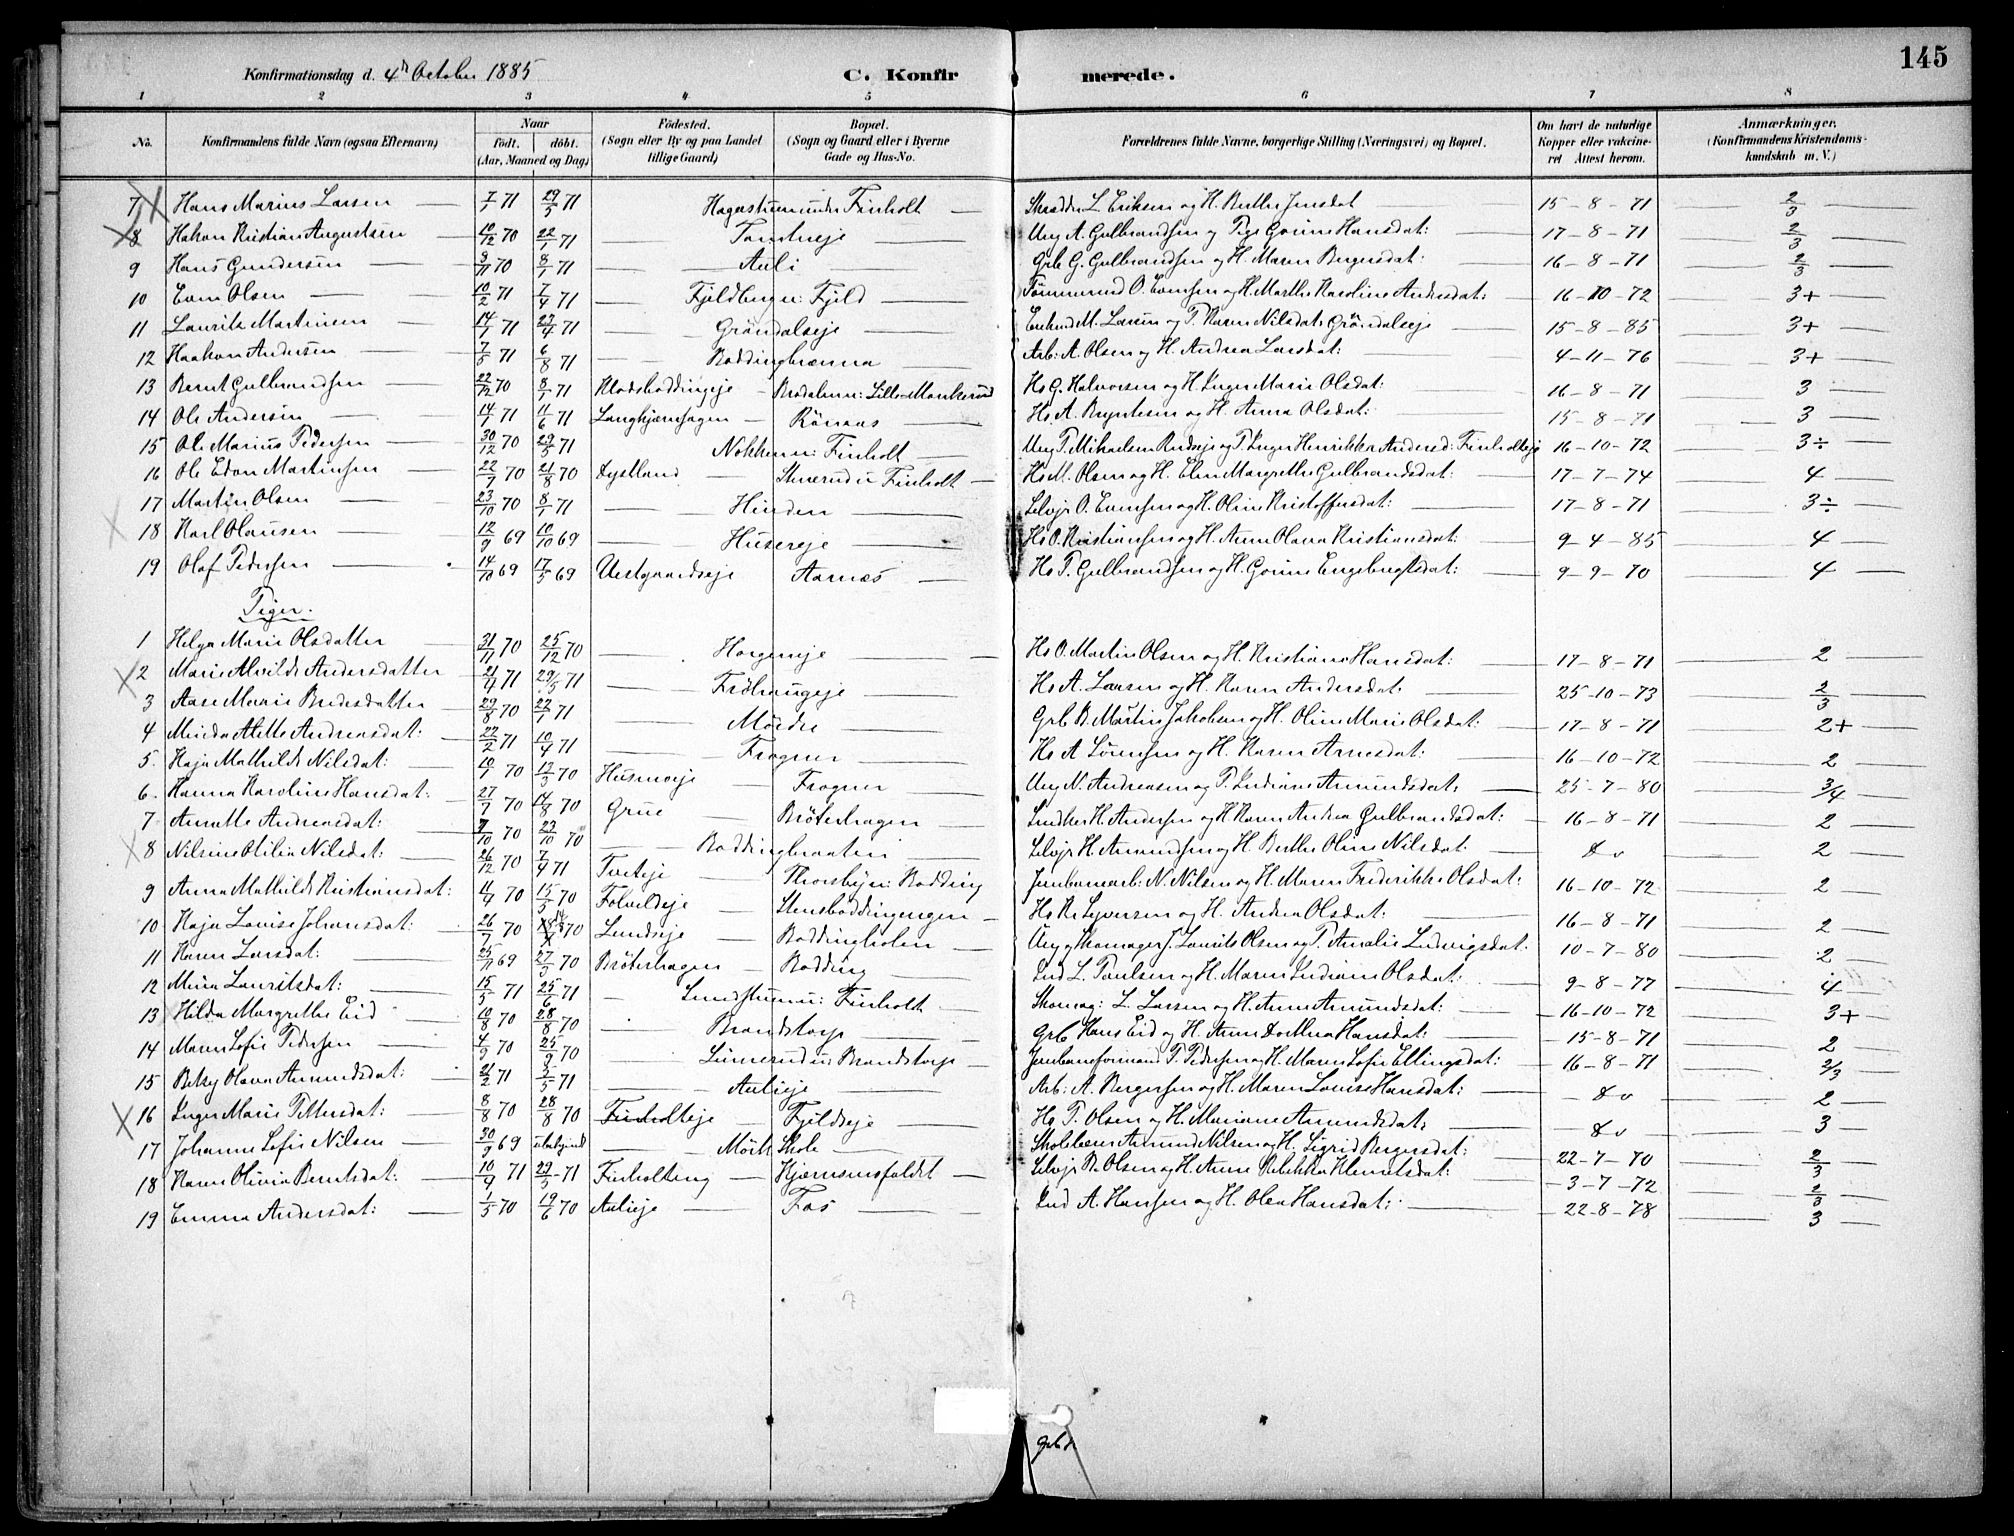 145
Konfirmationsdag d. 4de October 1885 C. Konfirmerede.
1 2 3 4 5 6 7 8
No. Konfirmandens fulde Navn (ogsaa Efternavn) Naar født. døbt. (Aar, Maaned og Dag) Fødested. (Sogn eller By og paa Landet tillige Gaard) Bopæl. (Sogn og Gaard eller i Byerne Gade og Hus-No. Forældrenes fulde Navne, borgerlige Stilling (Næringsvei) og Bopæl. Om havt de naturlige Kopper eller vakcineret Attest herom. Anmærkninger. (Konfirmandens Kristendomskundskab m. V.)
7 Hans Marius Larsen 7/1 71 29/5 71 Hagastuen under Finholt Skrædder L. Eriksen og H. Berthe Jensdat 15-8-71 2/3
8 Hakon Kristian Augustsen 10/12 70 22/1 71 Ung A. Gulbrandsen og Pige Gorine Hansdat: 17-8-71 2/3
9 Hans Gundersen 9/11 70 8/1 71 Auli Grb G. Gulbrandsen og H. Maren Bergersdat: 16-8-71 2/3
10 Even Olsen 10/2 71 7/4 71 Fjeldberg u: Fjeld Tømmermd O. Evensen og H. Marthe Karoline Andersdat: 16-10-72 3+
11 Laurits Martinsen 14/1 71 23/4 71 Gröndalseje Enkemd M. Larsen og P. Karen Nilsdat: Gröndalseje 15-8-85 3+
12 Haakon Andersen 7/5 71 6/8 71 Roddingbrænna Arb: A. Olsen og H. Andrea Larsdat: 4-11-76 3+
13 Bernt Gulbrandsen 22/12 70 8/1 71 Klodsboddingeje Lille-Monkerud Hs G. Halvorsen og H. Inger Marie Olsdat: 16-8-71 3
14 Ole Andersen 14/1 71 11/6 71 Langhjernhagen Rönaas Hs A. Bryntesen og H. Anna Olsdat: 15-8-71 3
15 Ole Marius Pedersen 30/12 70 29/5 71 Nokken u: Finholt Ung P. Mikaelsen Rudseje og P. Inger Henrikke Andersd: Finholteje 16-10-72 3÷
16 Ole Edvon Martinsen 22/7 70 21/8 70 Dystland Finholt Hs M. Olsen og H. Elen Margrethe Gulbrandsdat: 17-7-74 4
17 Martin Olsen 23/10 70 8/1 71 Selvejr O. Evensen og H. Oline Kristoffersdat: 17-8-71 3÷
18 Karl Olausen 12/9 69 10/10 69 Husereje Hs O. Kristiansen og H. Anne Olava Kristiansdat: 9-4-85 4
19 Olaf Pedersen 14/10 69 17/5 69 Vestgaardseje Aarnæs Hs P. Gulbrandsen og H. Gorine Engebregtsdat: 9-9-70 4
Piger.
1 Helga Marie Olsdatter 31/11 70 25/12 70 Horgeneje Hs O. Martin Olsen og H. Kristiane Hansdat: 17-8-71 2
2 Marie Alvilde Andersdatter 21/4 71 29/5 71 Fröhaugeje Hs A. Larsen og H. Karen Andersdat: 25-10-73 2/3
3 Aase Marie Berdesdatter 29/8 70 22/1 71 Mördre Grb B. Martin Jakobsen og H. Oline Marie Olsdat: 17-8-71 2+
4 Minda Alette Andreasdat: 22/2 71 10/4 71 Frogner Hs A Sörensen og H. Karen Arnesdat: 16-10-72 2
5. Kaja Mathilde Nilsdat: 10/1 70 13/3 70 Husmoeje Frogner Ung N. Andreasen og P. Indiane Amundsdat: 25-7-80 3/4
6. Hanna Karoline Hansdat: 27/7 70 14/8 70 Grue Bröterhagen H. Andersen og H Karen Andrea Gulbrandsdat: 16-8-71 2
7 Annette Andreasdat: 7/10 70 23/10 70 Roddingbraaten Selvejr H. Amundsen og H. Berthe Oline Nilsdat: do 2
8 Nilsine Otilie Nilsdat: 26/12 70 7/4 71 Tveteje Thorsbyn: Rodding Jernbanearb: N. Nilsen og H. Maren Frederikke Olsdat: 16-10-72 2
9 Anna Mathilde Kristiansdat: 11/4 70 15/5 70 Folvildseje Stensboddingengen Hs K. Syversen og H. Andrea Olsdat: 16-8-71 2
10 Kaja Louise Johansdat: 26/7 70 70 Lundseje Roddingholen Ung og Skomager J. Laurits Olsen og P. Amalie Ludvigsdat: 10-7-80 2
11 Karen Larsdat: 25/11 69 27/3 70 Bröterhagen Rodding Ind L. Paulsen og H. Maren Indiane Olsdat: 9-8-77 4
12 Mina Lauritsdat: 15/5 71 25/6 71 Lundstuen u: Finholt Skomag: L. Larsen og H. Anne Amundsdat: 16-10-72 3+
13 Hilda Margrethe Eid 10/8 70 28/8 70 Brandstorp Grb Hans Eid og H. Anne Dorthea Hansdat: 15-8-71 2
14 Maren Sofie Pedersen 4/9 70 25/9 70 Limerud u: Brandstorp Jernbaneformand P. Pedersen og H. Maren Sofie Ellingsdat: 16-8-71 2/3
15 Betsy Olava Amundsdat: 21/2 71 5/5 71 Aulieje Arb: A. Bergersen og H. Maren Louise Hansdat: do 2
16 Inger Marie Pettersdat: 8/8 70 28/8 70 Finholteje Fjeldseje Hs P. Olsen og H. Mariane Amundsdat: do 3
17 Johanne Sofie Nilsen 30/9 69 Mörk Skole Skolelærer Amund Nilsen og H. Sigrid Bergersdat: 22-7-70 2/3
18 Karen Olivia Berntsdat: 10/9 71 29/5 71 Finholteng Hjærnmosfaldet Selvejr B. Olsen og H. Anne Rebekka Klemetsdat: 3-7-72 2/3
19 Emma Andersdat: 1/5 70 19/6 70 Aulieje Fos Ind A. Hansen og H. Olea Hansdat: 22-8-78 3